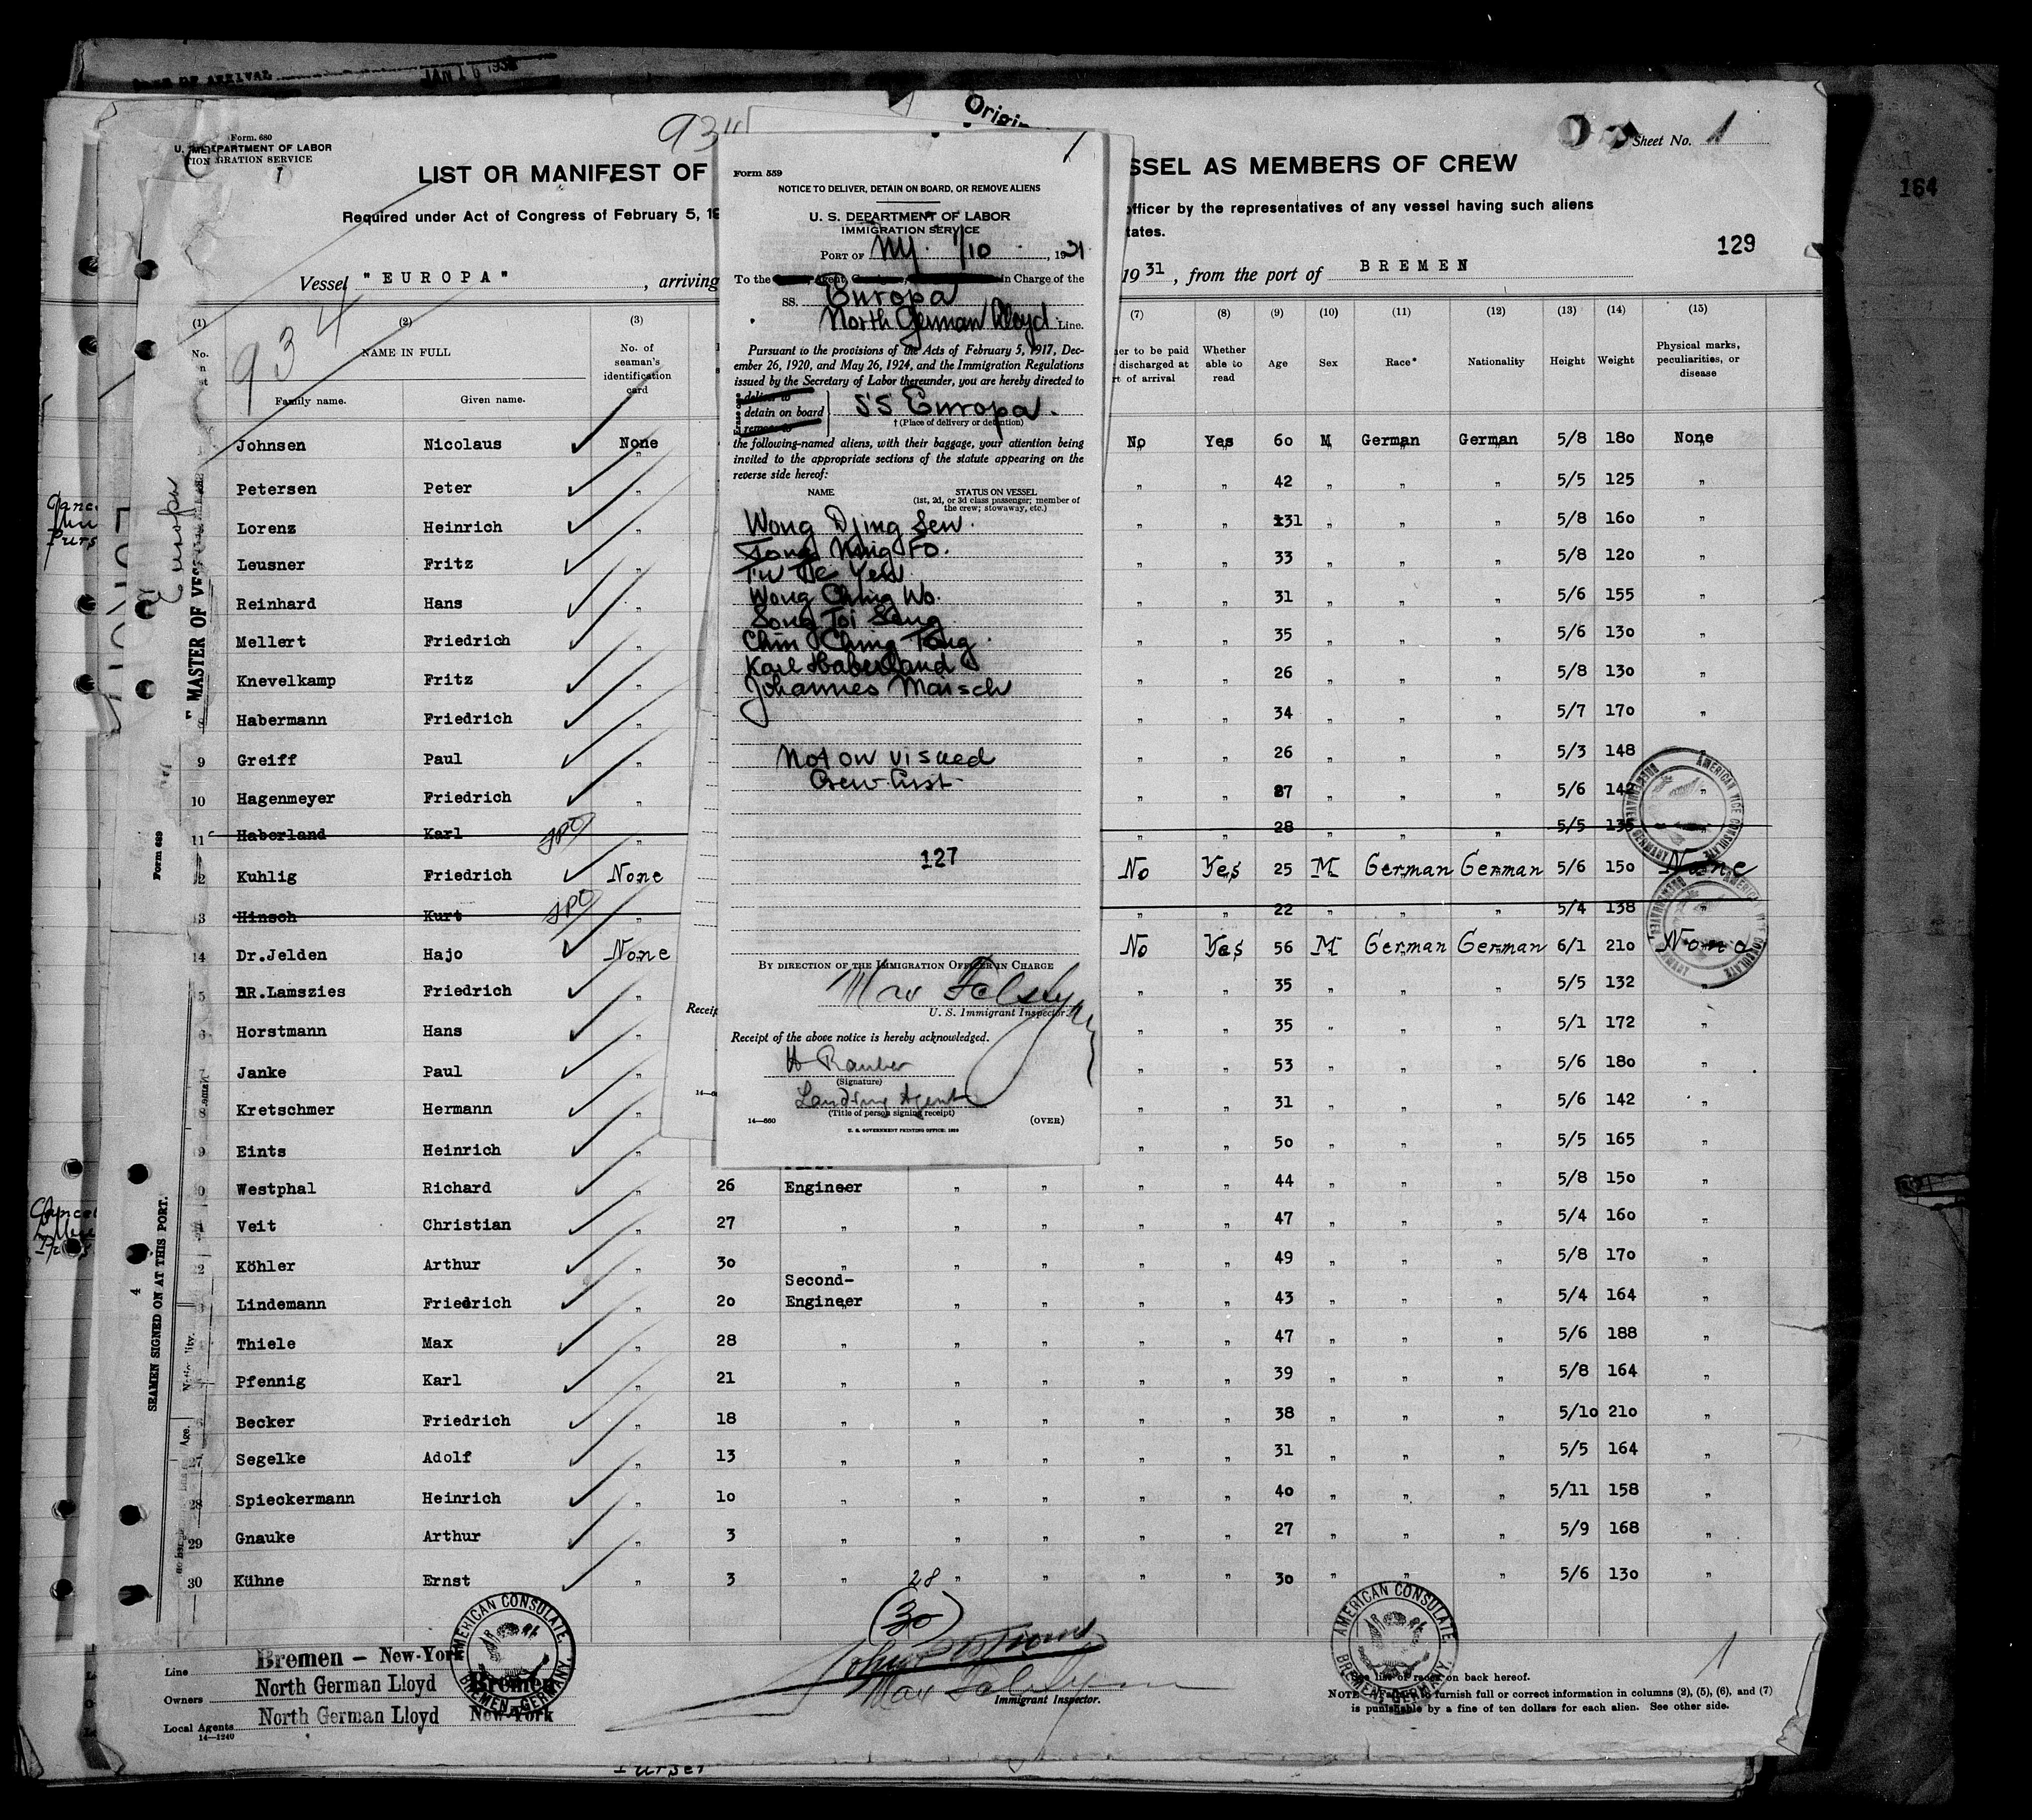 Form. 680
U. S. DEPARTMENT OF LABOR
Sheet No. 1
934
LIST OR MANIFEST OF
SSEL AS MEMBERS OF CREW
Required under Act of Congress of February 5, 19
officer by the representatives of any vessel having such aliens
tates.
129
164
Vessel "EUROPA", arriving
1931, from the port of BREMEN
934
(1) (2) (3) (7) (8) (9) (10) (11) (12) (13) (14) (15)
NAME IN FULL
Family name. Given name.
No. of seaman's identification card
er to be paid discharged at t of arrival
Whether able to read
Age Sex Race* Nationality Height Weight
Physical marks, peculiarities, or disease
Johnsen Nicolaus None No Yes 60 M German German 5/8 180 None
Petersen Peter " " " 42 " " " 5/5 125 "
Lorenz Heinrich " " " 31 " " " 5/8 160 "
Leusner Fritz " " " 33 " " " 5/8 120 "
Reinhard Hans " " " 31 " " " 5/6 155 "
Mellert Friedrich " " " 35 " " " 5/6 130 "
Knevelkamp Fritz " " " 26 " " " 5/8 130 "
8 Habermann Friedrich " " " 34 " " " 5/7 170 "
9 Greiff Paul " " " 26 " " " 5/3 148 "
10 Hagenmeyer Friedrich " " " 27 " " " 5/6 142 "
11 Haberland Karl " " " 28 " " " 5/5 135 "
12 Kuhlig Friedrich None No Yes 25 M German German 5/6 150 None
13 Hinsch Kurt " " " 22 " " " 5/4 138 "
14 Dr.Jelden Hajo None No Yes 56 M German German 6/1 210 None
5 DR.Lamszies Friedrich " " " 35 " " " 5/5 132 "
6 Horstmann Hans " " " 35 " " " 5/1 172 "
7 Janke Paul " " " 53 " " " 5/6 180 "
8 Kretschmer Hermann " " " 31 " " " 5/6 142 "
9 Eints Heinrich " " " 50 " " " 5/5 165 "
0 Westphal Richard " 26 Engineer " " " " 44 " " " 5/8 150 "
Veit Christian " 27 " " " " " 47 " " " 5/4 160 "
22 Köhler Arthur " 30 " " " " " 49 " " " 5/8 170 "
Second-
Lindemann Friedrich " 20 Engineer " " " " 43 " " " 5/4 164 "
Thiele Max " 28 " " " " " 47 " " " 5/6 188 "
Pfennig Karl " 21 " " " " " 39 " " " 5/8 164 "
Becker Friedrich " 18 " " " " " 38 " " " 5/10 210 "
27 Segelke Adolf " 13 " " " " " 31 " " " 5/5 164 "
28 Spieckermann Heinrich " 10 " " " " " 40 " " " 5/11 158 "
29 Gnauke Arthur " 3 " " " " " 27 " " " 5/9 168 "
30 Kühne Ernst " 3 " " " " " 30 " " " 5/6 130 "
28
(30)
Form 559
1
NOTICE TO DELIVER, DETAIN ON BOARD, OR REMOVE ALIENS
U. S. DEPARTMENT OF LABOR
IMMIGRATION SERVICE
PORT OF NY. 1/10, 1931
To the Agent, in Charge of the
SS. Europa
North German Lloyd Line.
Pursuant to the provisions of the Acts of February 5, 1917, Dec-
ember 26, 1920, and May 26, 1924, and the Immigration Regulations
issued by the Secretary of Labor thereunder, you are hereby directed to
deliver to
detain on board SS Europa.
remove to
† (Place of delivery or detention)
the following-named aliens, with their baggage, your attention being
invited to the appropriate sections of the statute appearing on the
reverse side hereof:
NAME STATUS ON VESSEL
(1st, 2d, or 3d class passenger; member of
the crew; stowaway, etc.)
Wong Djing Sew.
Wong Ching Wo.
Song Toi Sang
Chin Ching Tong.
Karl Haberland
Johannes Maisch
Not on visaed
Crew List
127
BY DIRECTION OF THE IMMIGRATION OFFICER IN CHARGE
U. S. Immigrant Inspector.
Receipt of the above notice is hereby acknowledged.
H Rauber
(Signature)
Landing Agent
(Title of person signing receipt)
14—660 (OVER)
U. S. GOVERNMENT PRINTING OFFICE: 1930
Line Bremen – New-York
Owners North German Lloyd Bremen
Local Agents North German Lloyd New-York
14—1240
AMERICAN CONSULATE, BREMEN, GERMANY.
AMERICAN CONSULATE BREMEN, GERMANY.
Immigrant Inspector.
See list of races on back hereof.
NOTE furnish full or correct information in columns (2), (5), (6), and (7)
is punishable by a fine of ten dollars for each alien. See other side.
1
MASTER OF VES
Europa
Form 689
SEAMEN SIGNED ON AT THIS PORT.
4
Name.
Nationality.
Age.
Purser